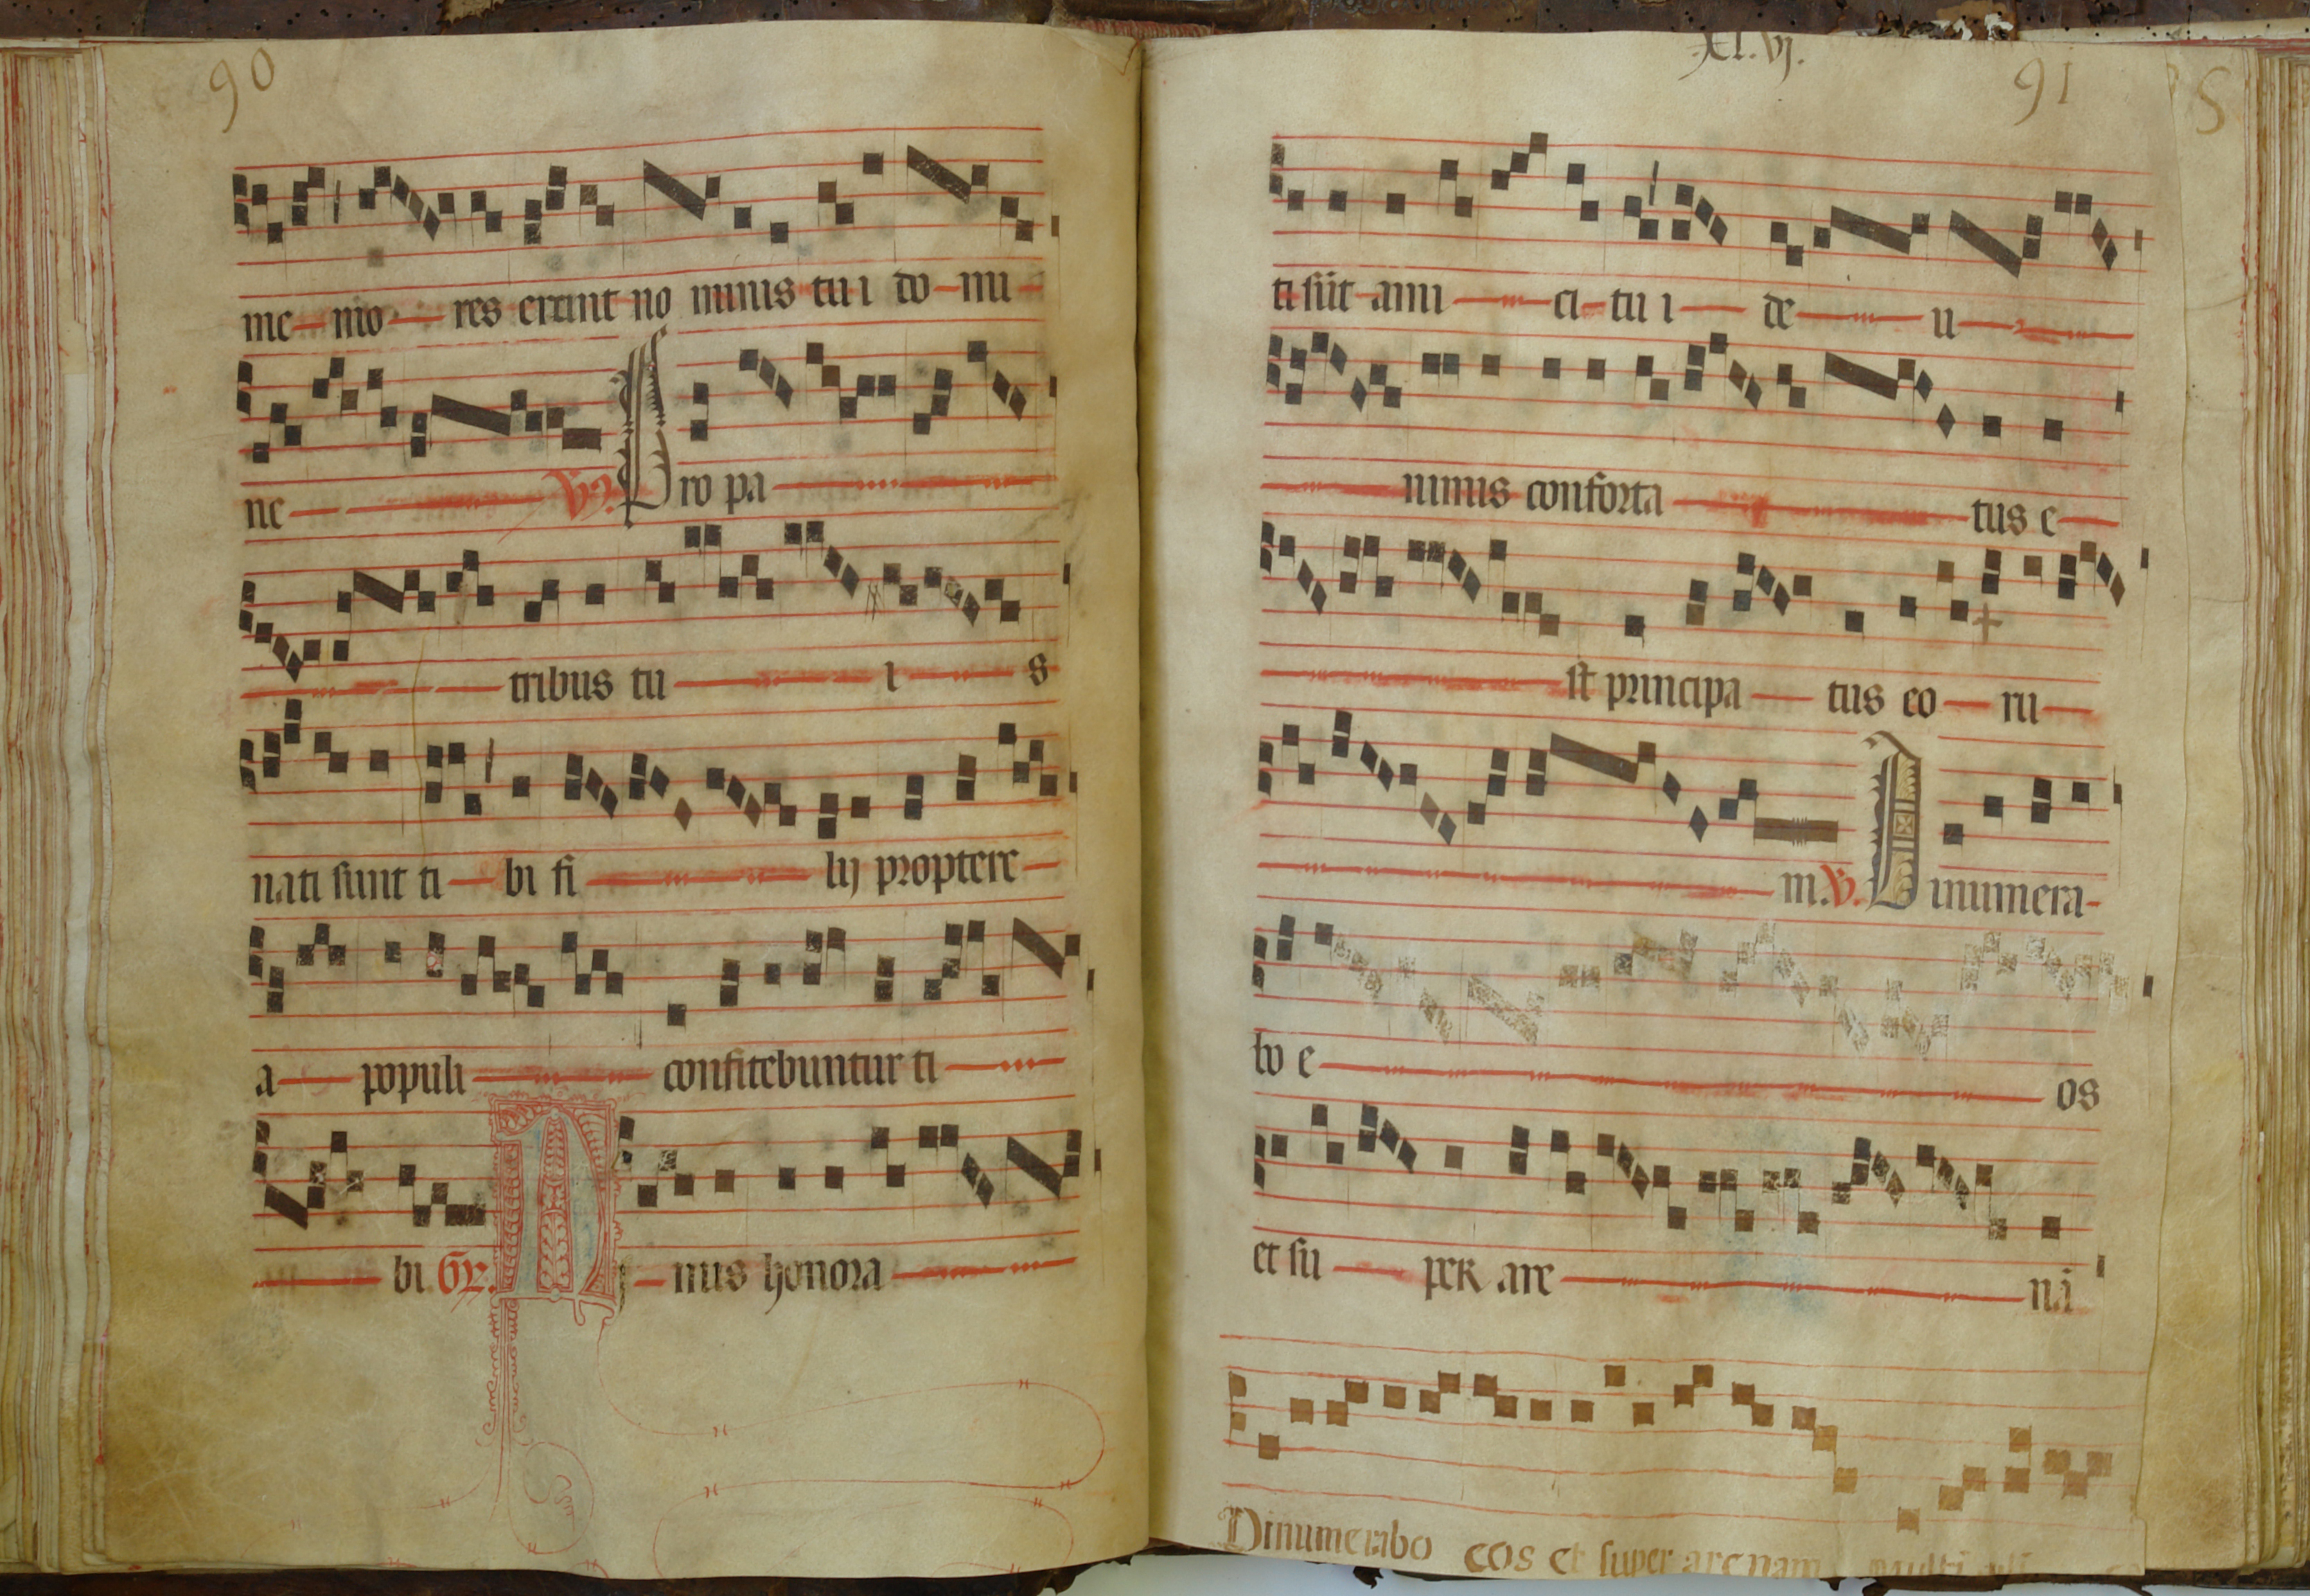 90
me mo res erunt no minis tu i do mi
ne ℣. Pro pa
tribus tu i s
nati sunt ti bi fi lij proptere
a populi confitebuntur ti
bi Gr. N i mis honora
XLVI.
91
ti sūt ami ci tu i de u
nimis conforta tus e
st principa tus eo ru
m. ℣. Dinumera
bo e os
et su per are nā
Dinumerabo eos et super arenam
5